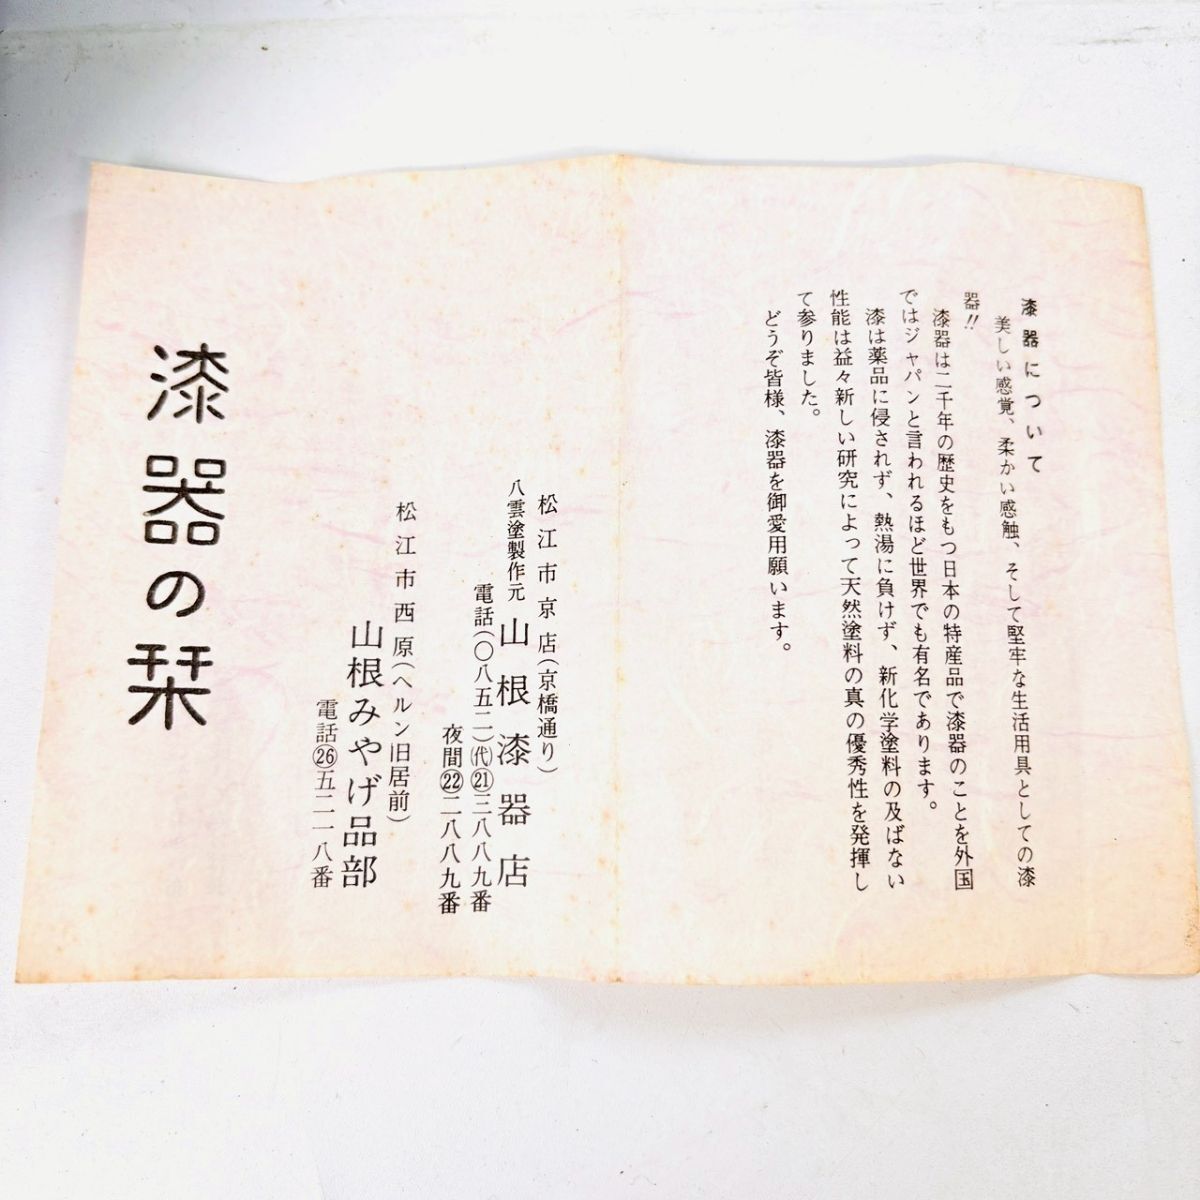 漆器について
美しい感覚、柔かい感触、そして堅牢な生活用具としての漆
器!!
漆器は二千年の歴史をもつ日本の特産品で漆器のことを外国
ではジャパンと言われるほど世界でも有名であります。
漆は薬品に侵されず、熱湯に負けず、新化学塗料の及ばない
性能は益々新しい研究によって天然塗料の真の優秀性を発揮し
て参りました。
どうぞ皆様、漆器を御愛用願います。
松江市京店(京橋通り)
八雲塗製作元 山根漆器店
電話(〇八五二)(代)㉑三八八九番
夜間㉒二八八九番
松江市西原(ヘルン旧居前)
山根みやげ品部
電話㉖五二一八番
漆器の栞